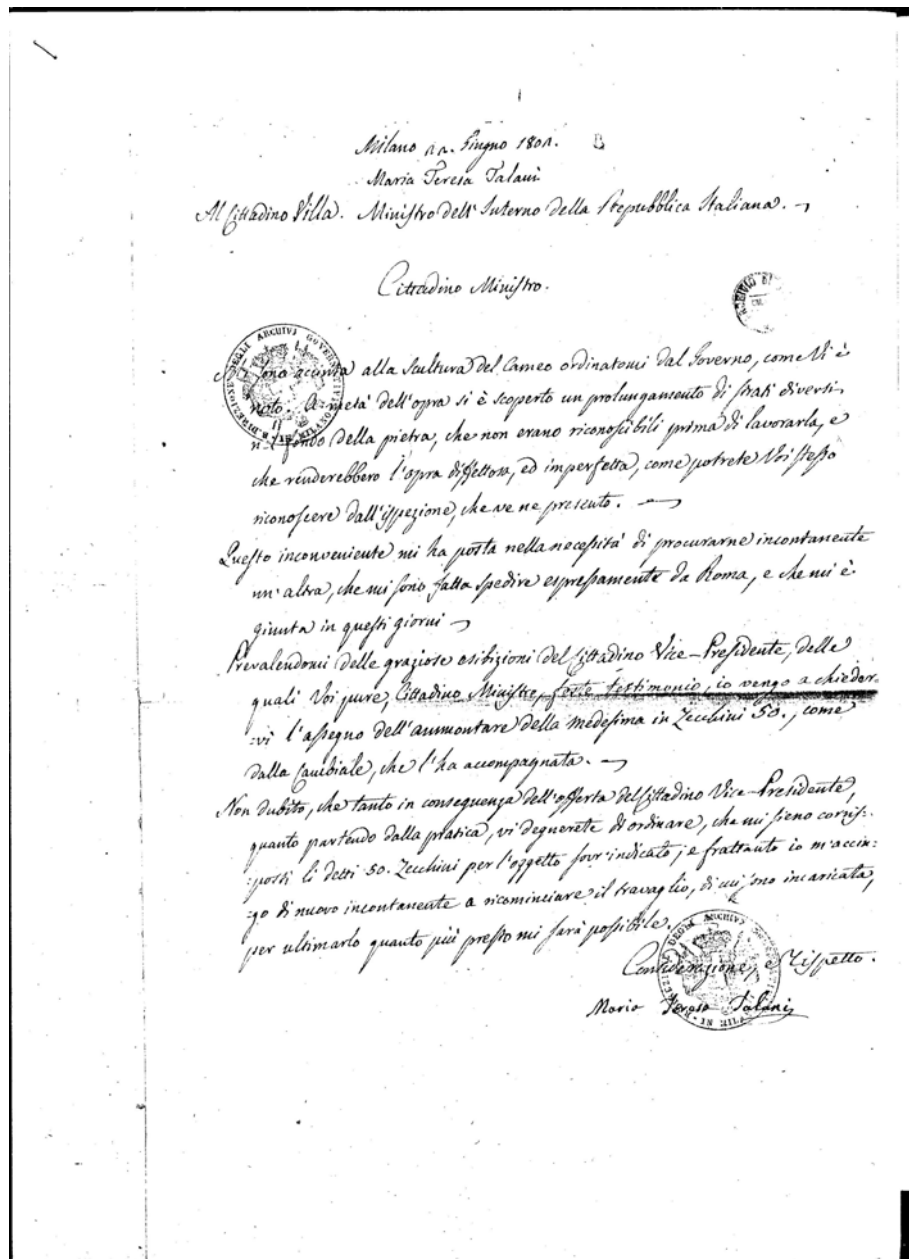 Milano 22. Giugno 1802. B
Maria Teresa Talani
Al Cittadino Villa. Ministro dell'Interno della Repubblica Italiana.
Cittadino Ministro.
Mi sono accinta alla Scultura del Cameo ordinatomi dal Governo, come Vi è
noto. A metà dell'opra si è scoperto un prolungamento di strati diversi
nel fondo della pietra, che non erano riconoscibili prima di lavorarla, e
che renderebbero l'opra diffettosa, ed imperfetta, come potrete Voi stesso
riconoscere dall'ispezione, che ve ne presento.
Questo inconveniente mi ha posta nella necessità di procurarne incontanente
un'altra, che mi sono fatta spedire espressamente da Roma, e che mi è
giunta in questi giorni
Prevalendomi delle graziose esibizioni del Cittadino Vice-Presidente, delle
quali Voi pure, Cittadino Ministro, foste testimonio, io vengo a chieder-
:vi l'assegno dell'ammontare della medesima in Zecchini 50., come
dalla Cambiale, che l'ha accompagnata.
Non dubito, che tanto in conseguenza dell'offerta del Cittadino Vice-Presidente,
quanto partendo dalla pratica, vi degnerete di ordinare, che mi sieno corris:
:posti li detti 50. Zecchini per l'oggetto sovr'indicato; e frattanto io m'accin:
:go di nuovo incontanente a ricominciare il travaglio, di cui sono incaricata,
per ultimarlo quanto più presto mi sarà possibile.
Considerazione, e Rispetto.
Maria Teresa Talani